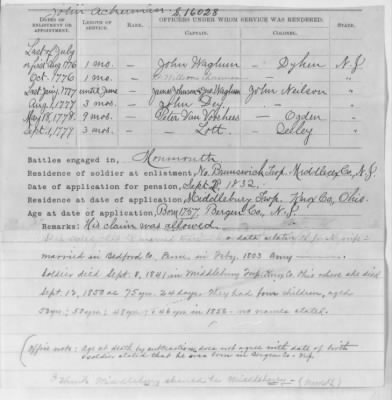 John Ackerman S.16028
DATES OF ENLISTMENT OR APPOINTMENT. LENGTH OF SERVICE. RANK. OFFICERS UNDER WHOM SERVICE WAS RENDERED. STATE.
CAPTAIN. COLONEL.
Last of July
or first Aug 1776 1 mo. — John Waglum — Dyken N.J.
Oct. 1776 1 mo. — William "
Last Jany. 1777 until June — James Johnson John Neilson "
Aug. 1777 3 mos. — John Dey — "
May 18, 1778 9 mos. — Peter Van Voorhees — Ogden "
Sept. 1, 1779 3 mos. — — Lott — Seeley "
Battles engaged in, Monmouth
Residence of soldier at enlistment, No. Brunswick Twp. Middlesex Co., N.J.
Date of application for pension, Sept. 1832.
Residence at date of application, Middlebury Twp. Knox Co., Ohio.
Age at date of application, Born 1767, Bergen Co., N.J.
Remarks: His claim was allowed.
married in Bedford Co., Penn. in Feby. 1803
Soldier died Sept. 8, 1841 in Middlebury Twp. Knox Co. Ohio where she died
Sept. 13, 1850 ae 75 yrs. 24 days. They had four children, aged
53 yrs; 50 yrs; 48 yrs; & 46 yrs in 1852 - no names stated.
(Office note: Age at death by subtraction does not agree with date of birth
soldier stated that he was born in Bergen Co. N.J.
Think Middlebury should be Middlebury -